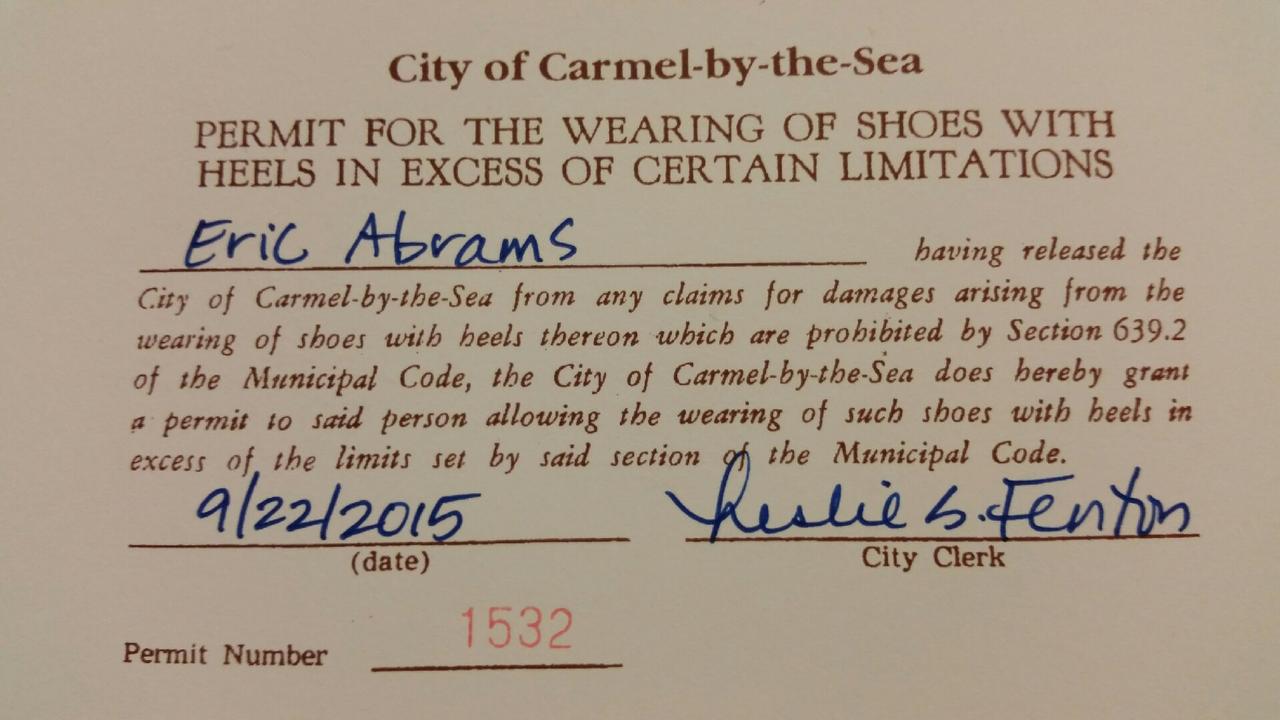 City of Carmel-by-the-Sea
PERMIT FOR THE WEARING OF SHOES WITH
HEELS IN EXCESS OF CERTAIN LIMITATIONS
Eric Abrams having released the
City of Carmel-by-the-Sea from any claims for damages arising from the
wearing of shoes with heels thereon which are prohibited by Section 639.2
of the Municipal Code, the City of Carmel-by-the-Sea does hereby grant
a permit to said person allowing the wearing of such shoes with heels in
excess of the limits set by said section of the Municipal Code.
9/22/2015 Leslie S. Fenton
(date) City Clerk
1532
Permit Number